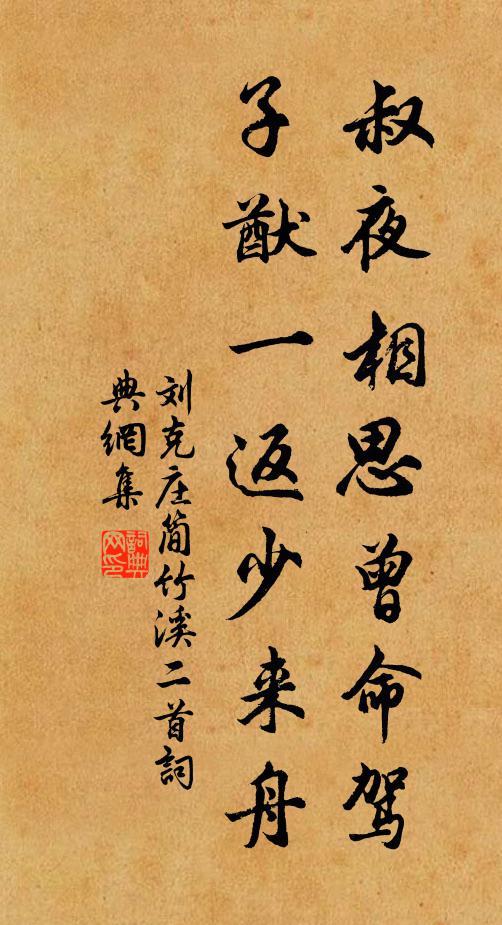 叔夜相思曾命驾
子猷一返少来舟
刘克庄简竹溪二首詞
典網集
詞典
网印